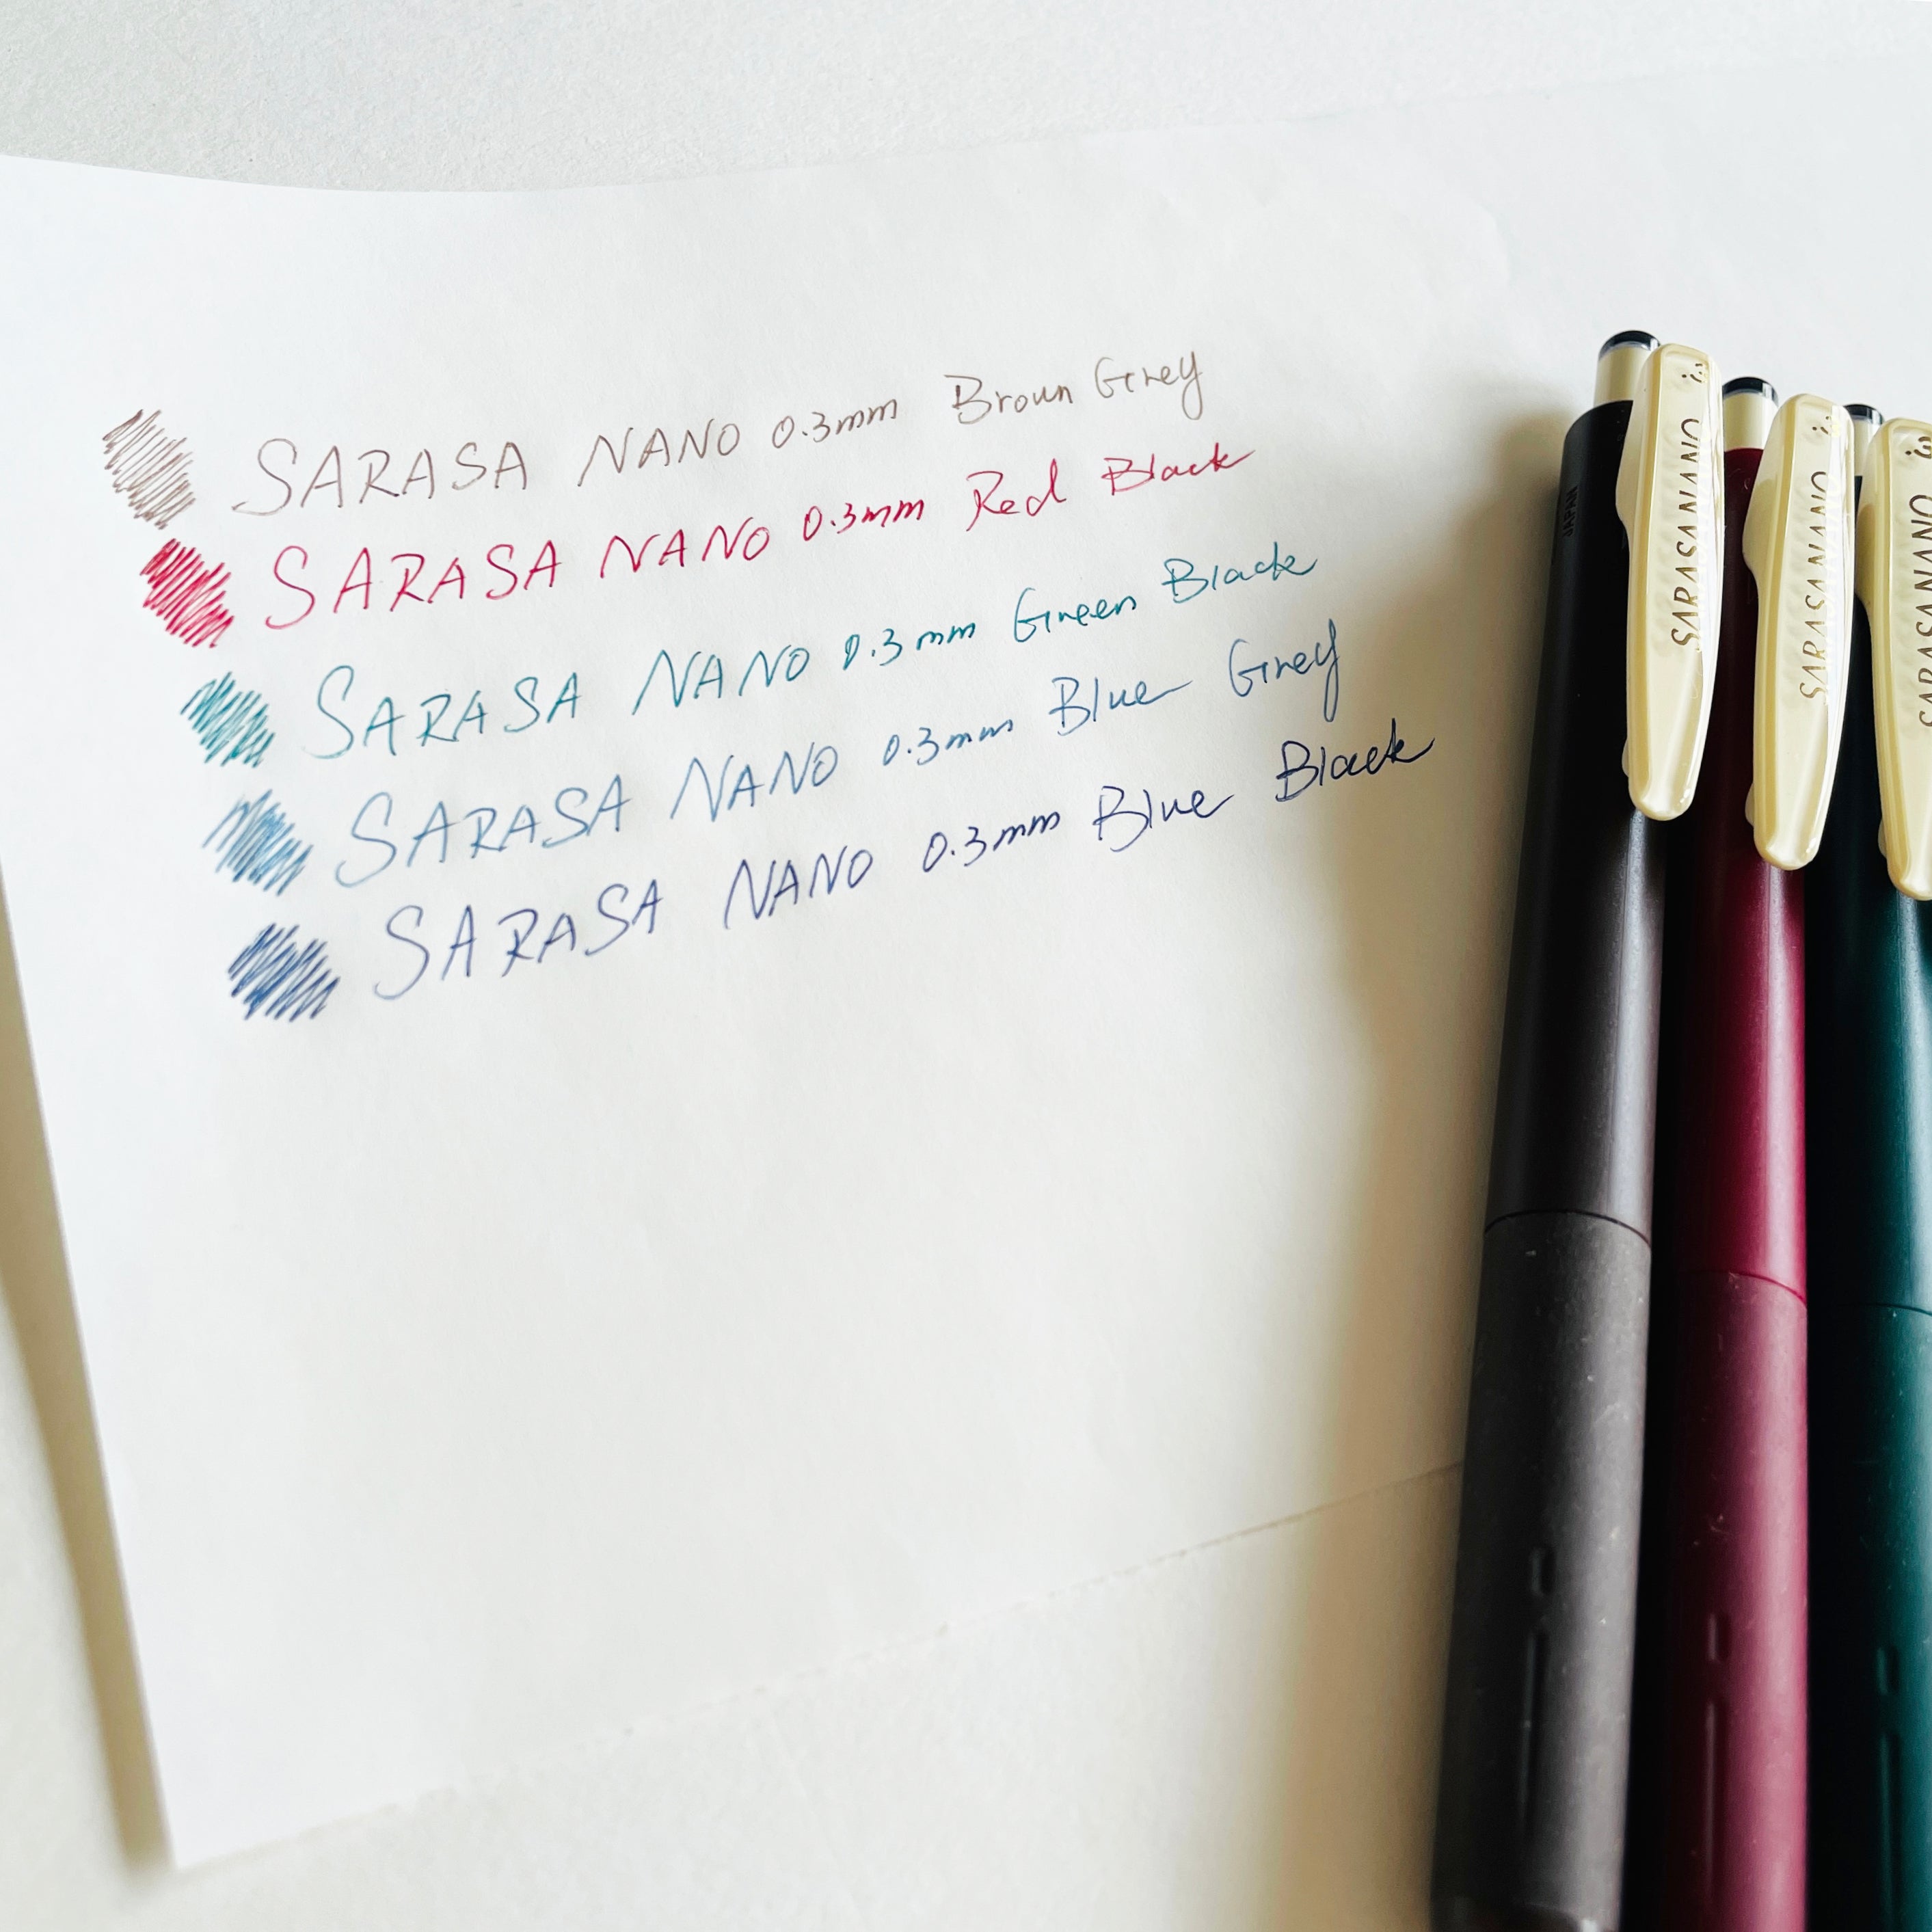 SARASA NANO 0.3mm Broun Grey
SARASA NANO 0.3mm Red Black
SARASA NANO 0.3mm Green Black
SARASA NANO 0.3mm Blue Grey
SARASA NANO 0.3mm Blue Black
JAPAN
SARASA NANO
SARASA NANO
SARASA NANO